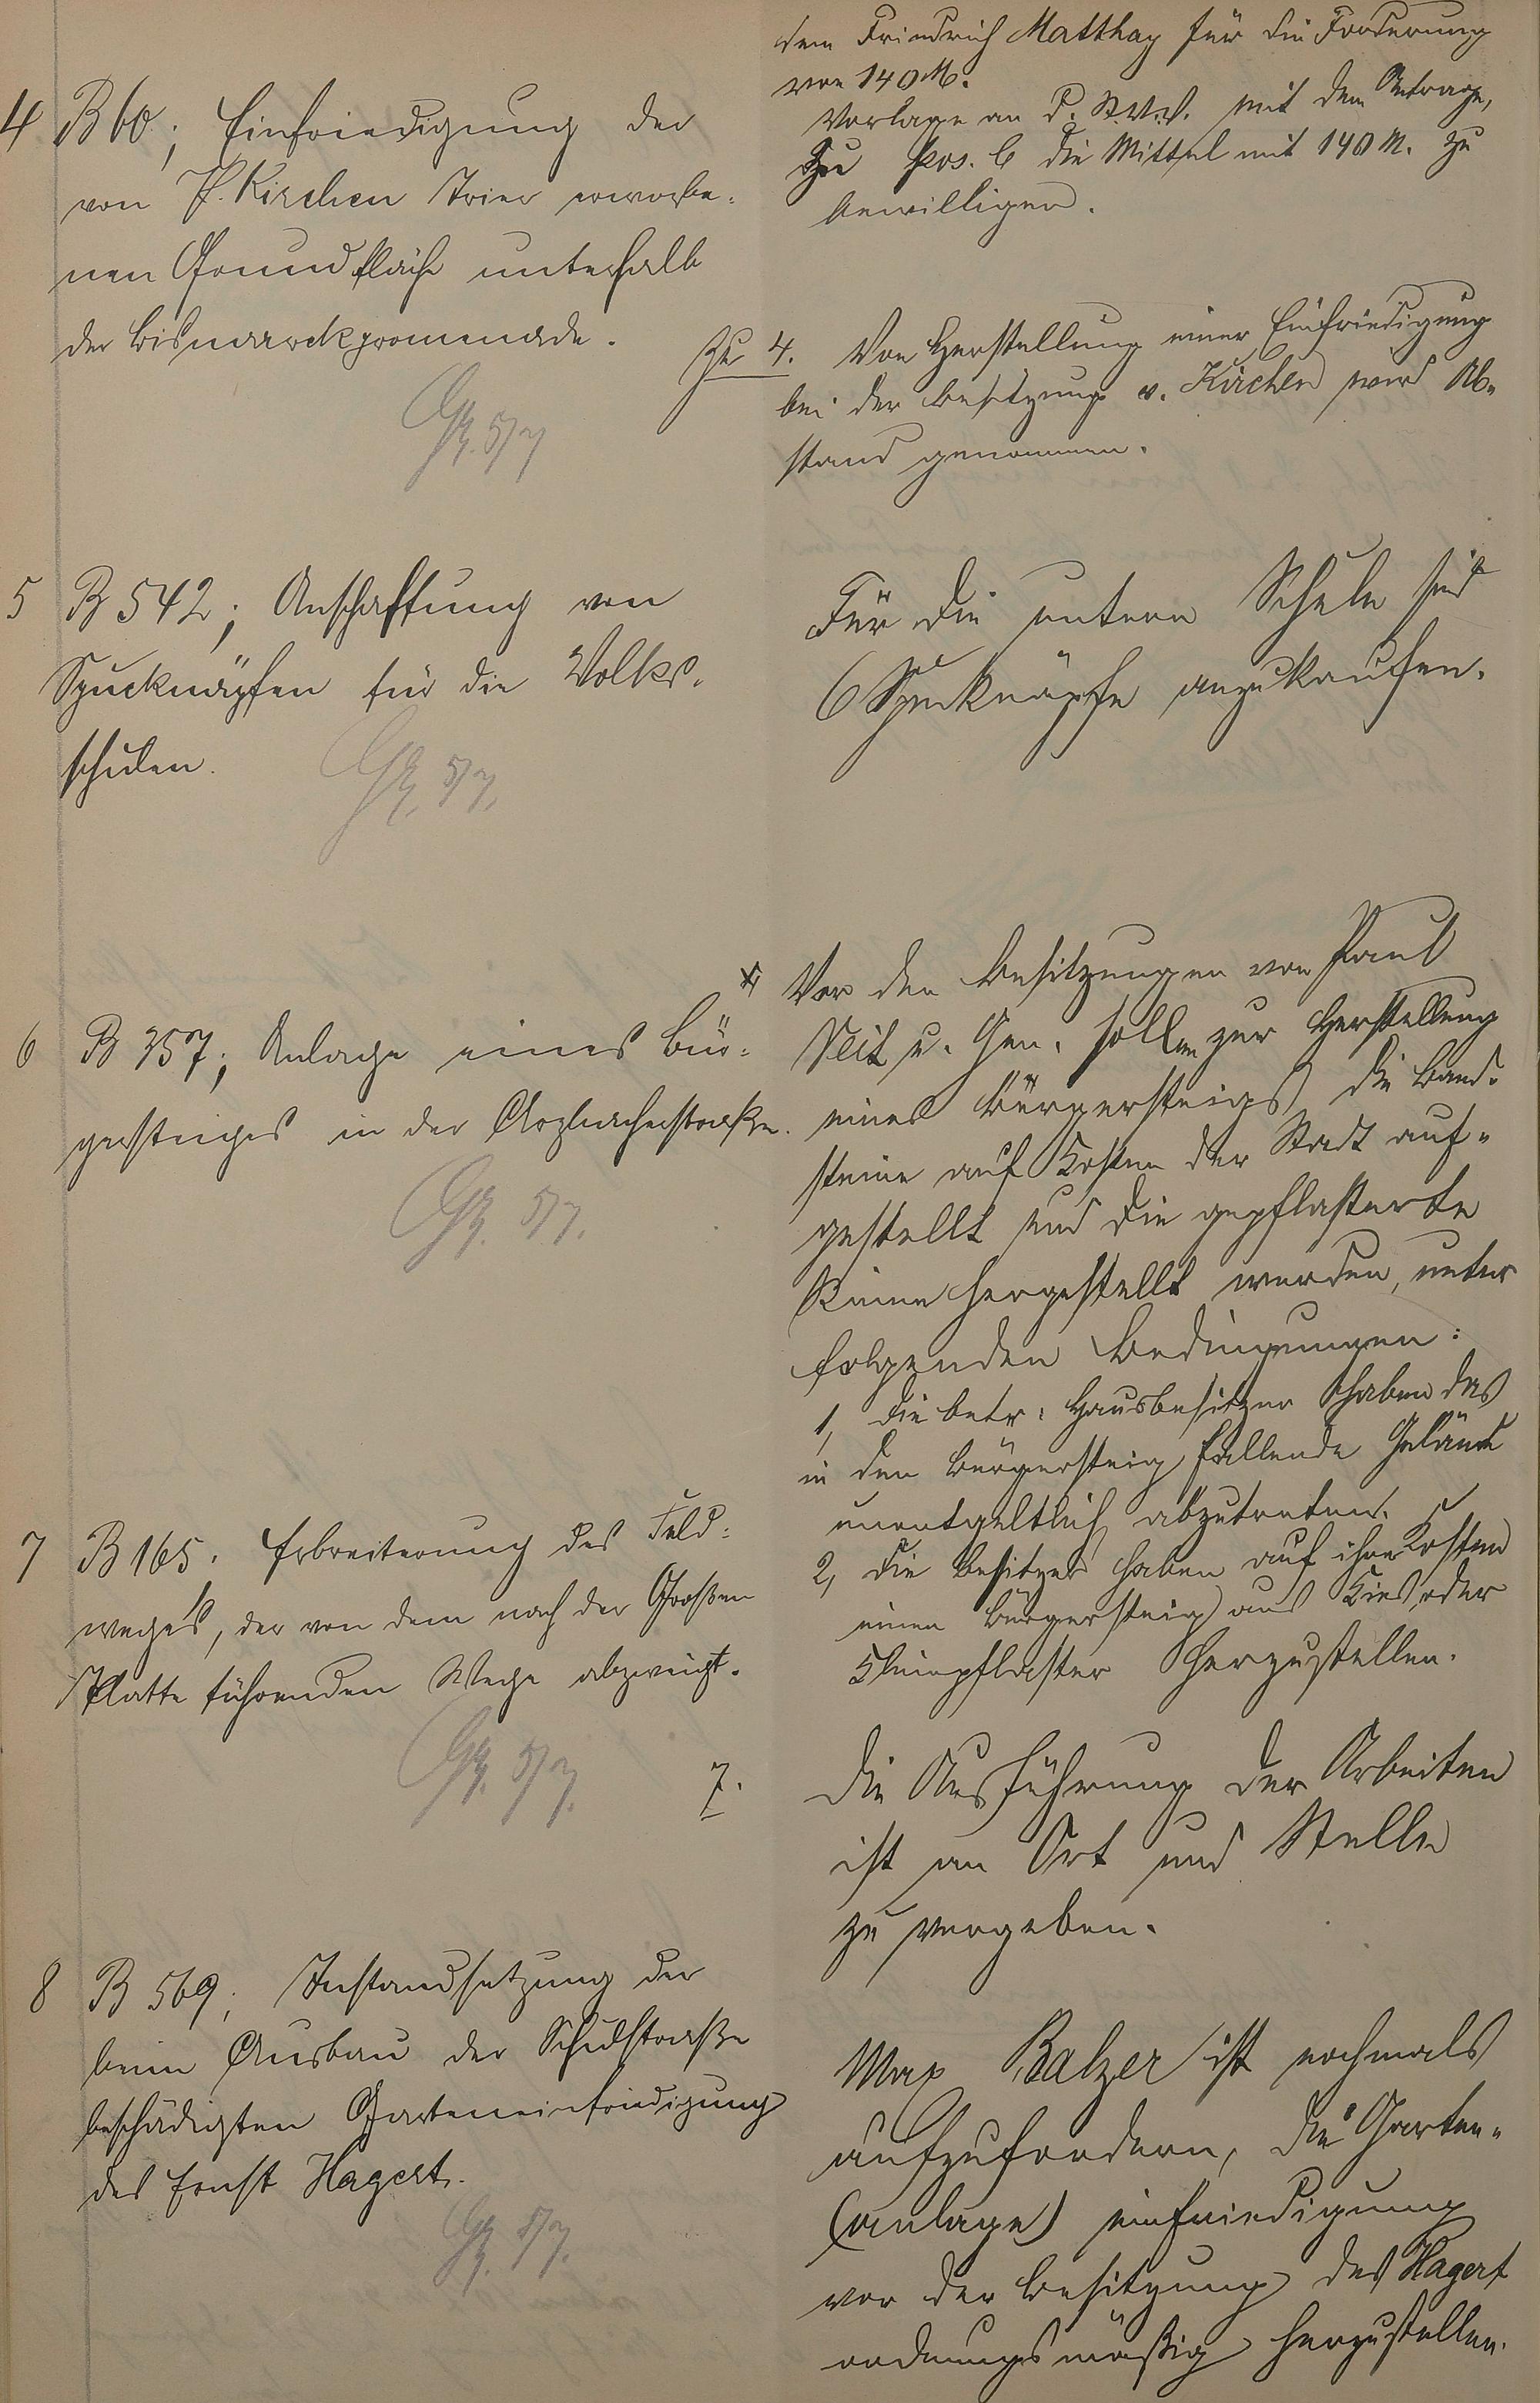 dem Friedrich Matthay für die Forderung
von 140 M.
Vorlage an d. St.V.V. mit dem Antrage,
zu pos. 6 die Mittel mit 140 M. zu
bewilligen.
4 B 60; Einfriedigung der
von P. Kirchen Trier erworbe-
nen Grundfläche unterhalb
der Bismarckpromenade.
Gz. 5/7
Zu 4. Von Herstellung einer Einfriedigung
bei der Besitzung v. Kirchen wird Ab-
stand genommen.
5 B 542; Anschaffung von
Spucknäpfen für die Volks-
schulen.
Gz. 5/7.
Für die untere Schule sind
6 Spucknäpfe anzukaufen.
6 B 357; Anlage eines Bür-
gersteiges in der Arzbacherstraße.
Gz. 5/7.
Vor den Besitzungen von Paul
Veit u. Gen. sollen zur Herstellung
eines Bürgersteigs die Band-
steine auf Kosten der Stadt auf-
gestellt und die gepflasterte
Rinne hergestellt werden, unter
folgenden Bedingungen:
1, die betr. Hausbesitzer haben das
in den Bürgersteig fallende Gelände
unentgeltlich abzutreten.
2, die Besitzer haben auf ihre Kosten
einen Bürgersteig aus Kies oder
Kleinpflaster herzustellen.
7 B 165. Erbreiterung des Feld-
weges, der von dem nach der Großen
Platte führenden Wege abzweigt.
Gz. 5/7.
7. Die Ausführung der Arbeiten
ist an Ort und Stelle
zu vergeben.
8 B 569; Instandsetzung der
beim Ausbau der Schulstraße
beschädigten Garteneinfriedigung
des Ernst Hagert.
Gz. 5/7.
Max Balzer ist nochmals
aufzufordern, die Garten-
(anlage) einfriedigung
vor der Besitzung des Hagert
ordnungsmäßig herzustellen.